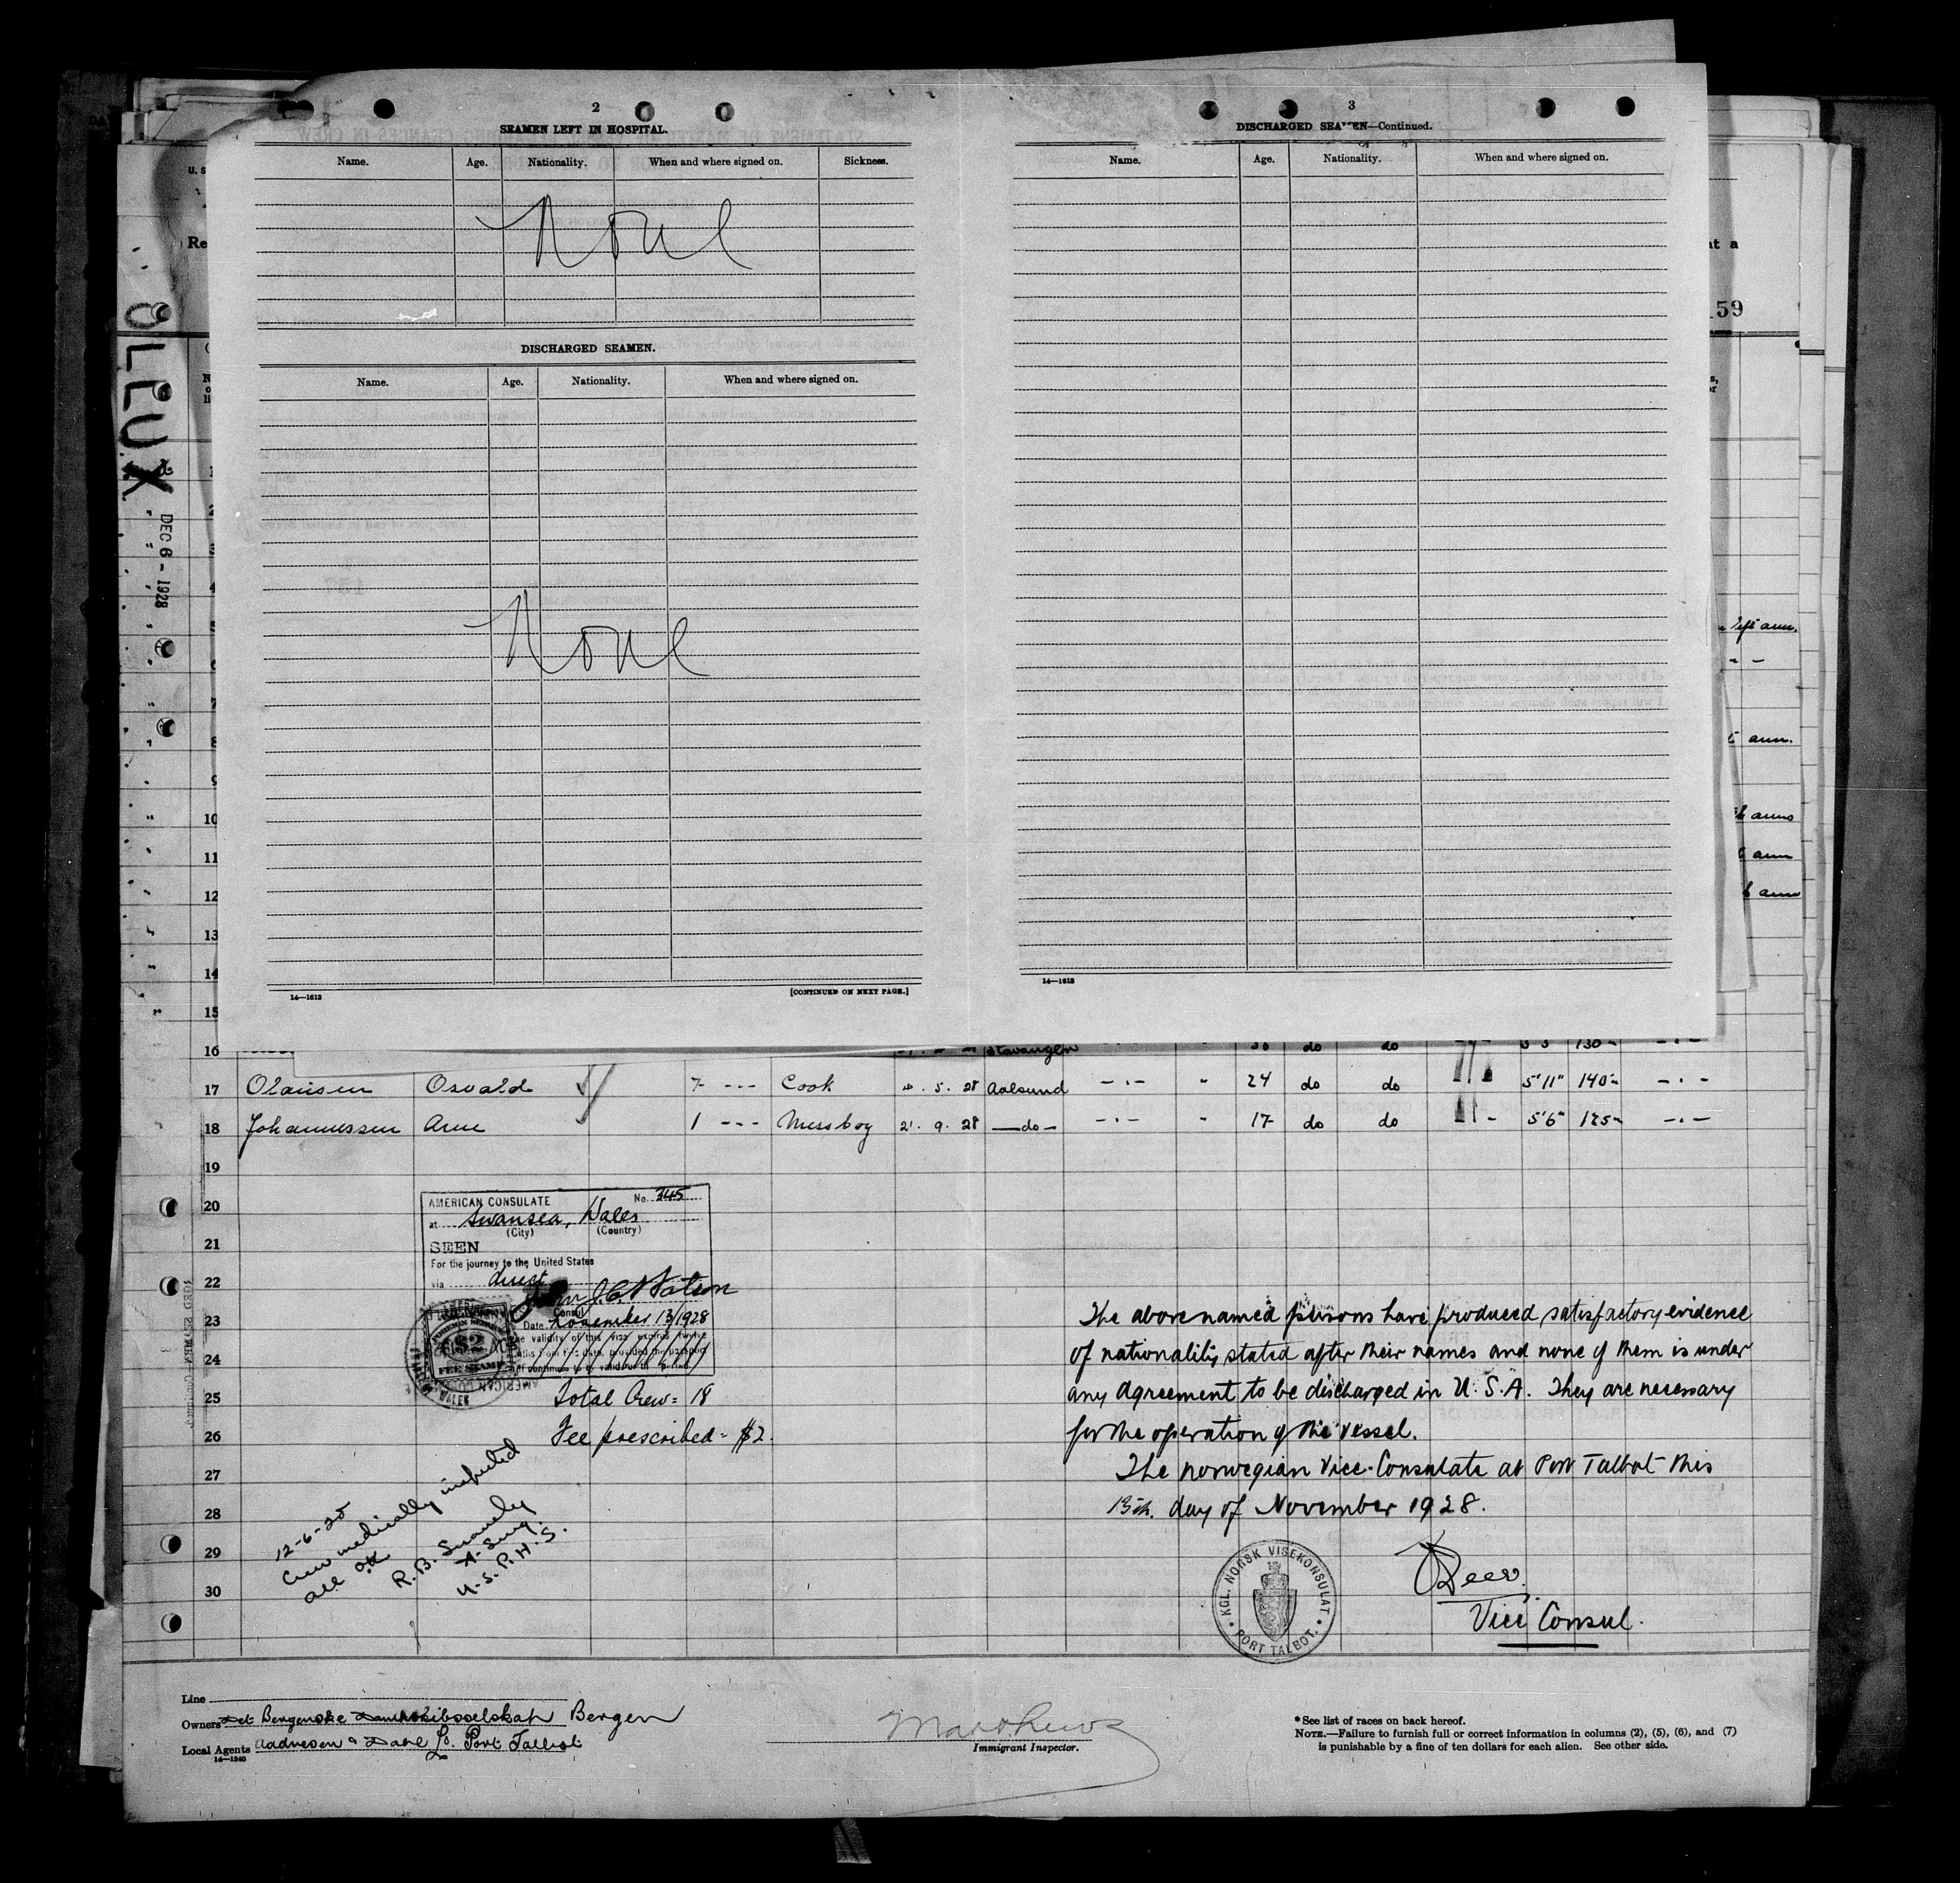 2
SEAMEN LEFT IN HOSPITAL.
Name. Age. Nationality. When and where signed on. Sickness.
None
DISCHARGED SEAMEN.
Name. Age. Nationality. When and where signed on.
None
14—1613 [CONTINUED ON NEXT PAGE.]
3
DISCHARGED SEAMEN—Continued.
Name. Age. Nationality. When and where signed on.
14—1613
U. S
Re
at a
59
DEC 6 - 1928
left arm.
arm.
arms
arm
arm
10
11
12
13
14
15
16 Stavanger 38 do do 5'5" 130"
17 Olausen Osvald 7 - - - Cook 4. 5. 28 Aalesund —·— " 24 do do 5'11" 140" —·—
18 Johannessen Arne 1 - - - Messboy 21. 9. 28 —do— —·— " 17 do do 5'6" 125" —·—
19
20
21
22
23
24
25
26
27
28
29
30
AMERICAN CONSULATE No. 345
at Swansea, Wales
(City) (Country)
SEEN
For the journey to the United States
via direct
John J. C. Watson
Consul
Date November 13/1928
The validity of this visa expires twelve
months from this date, provided the passport
continues to be valid
$2
FEE STAMP
Total Crew = 18
Fee prescribed = $2.
12-6-28
Crew medically inspected
all OK
R. B. Snavely
A. Surg.
U. S. P. H. S.
The above named persons have produced satisfactory evidence
of nationality stated after their names and none of them is under
any Agreement to be discharged in U. S. A. They are necessary
for the operation of the vessel.
The Norwegian Vice-Consulate at Port Talbot this
13th. day of November 1928.
KGL. NORSK VISEKONSULAT
PORT TALBOT.
Vice Consul.
Line
Owners Det Bergenske Dampskibsselskab Bergen
Local Agents Aadnesen & Dahl Ld. Port Talbot
14—1240
Matthews
Immigrant Inspector.
* See list of races on back hereof.
NOTE.—Failure to furnish full or correct information in columns (2), (5), (6), and (7)
is punishable by a fine of ten dollars for each alien. See other side.